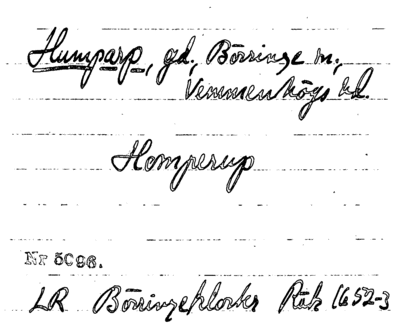 Humparp, gd, Börringe sn,
Vemmenhögs hd.
Homperup
Nr 5096.
LR Börringekloster Räk 1652-3